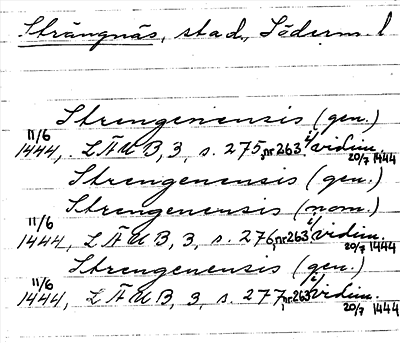 Strängnäs, stad, Söderm. l
Strengenensis (gen.)
11/6 1444, LÄUB, 3, s. 275, nr 263 i/ vidim. 20/7 1444
Strengenensis (gen.)
Strengenensis (nom.)
11/6 1444, LÄUB, 3, s. 276, nr 263 i/ vidim. 20/7 1444
Strengenensis (gen.)
11/6 1444, LÄUB, 3, s. 277, nr 263 i/ vidim. 20/7 1444